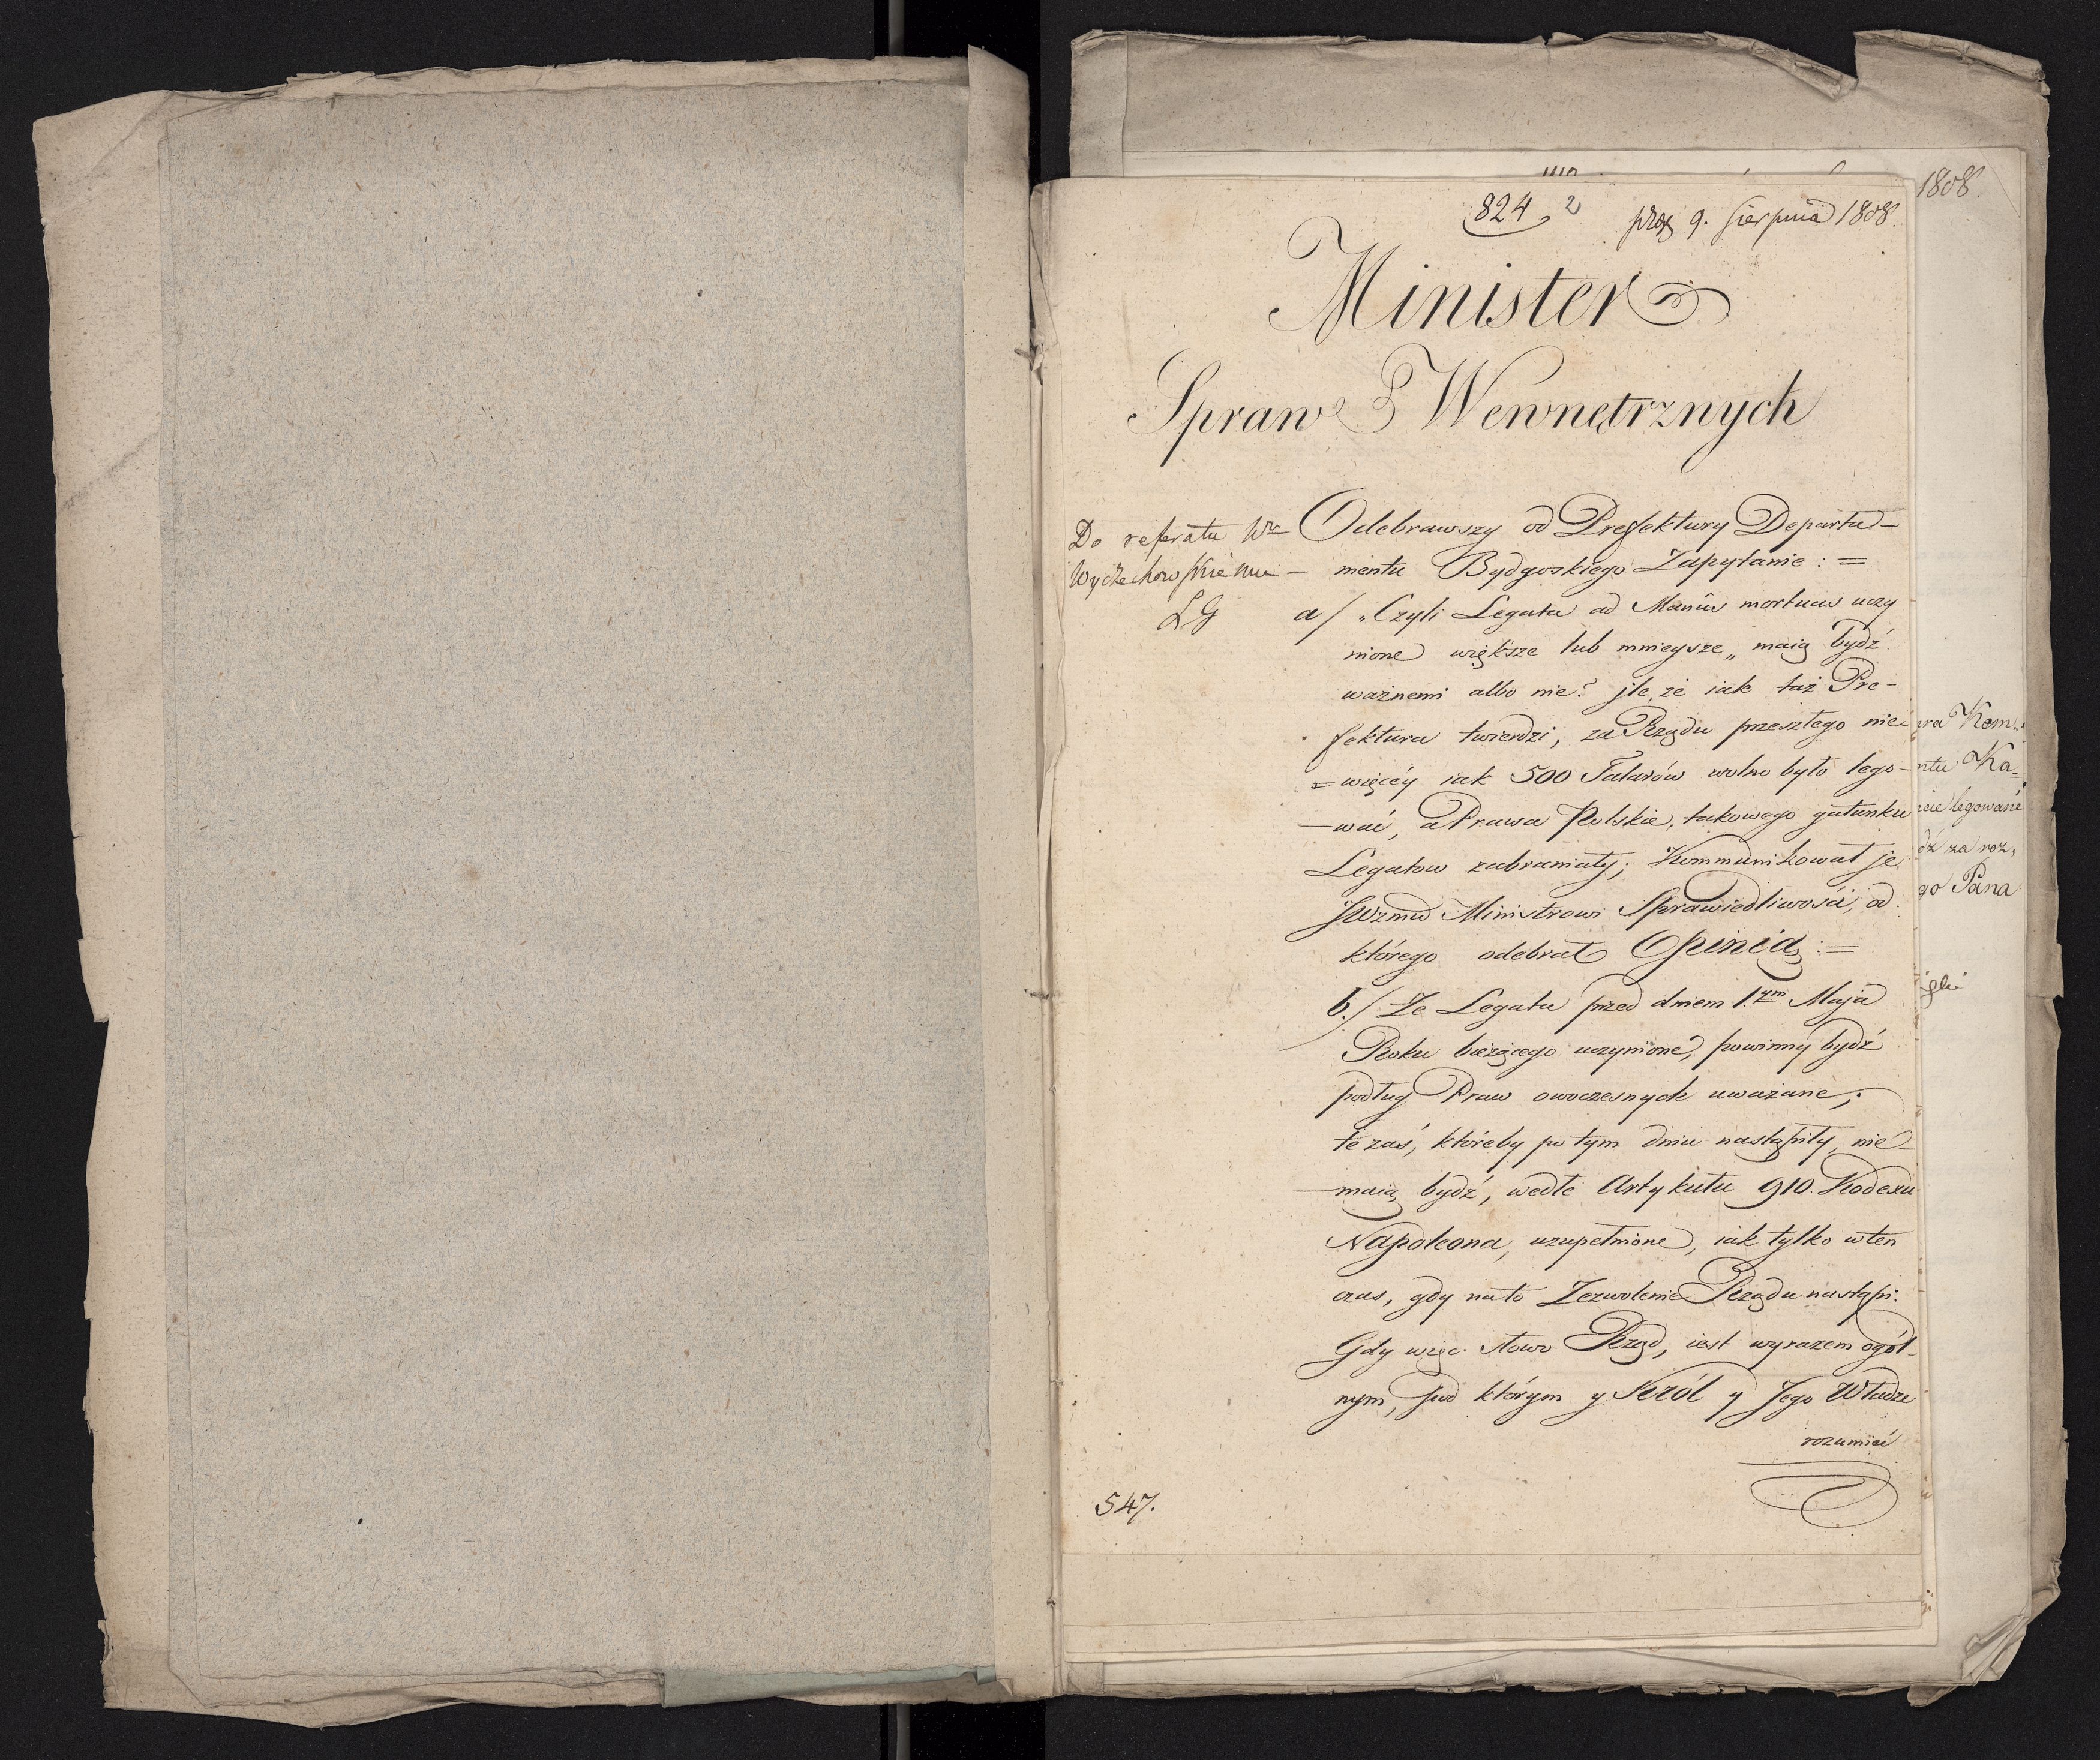 1808.
824 2
prez 9. Sierpnia 1808.
Minister
Spraw Wewnętrznych
Do referatu Wu
Wyczechowskiemu
LG
Odebrawszy od Prefektury Departa-
mentu Bydgoskiego Zapytanie: =
a/ „Czyli Legata ad Manus mortuas uczy
nione większe lub mnieysze„ maią bydź
ważnemi albo nie? jle że iak taż Pre-
fektura twierdzi, za Rządu przeszłego nie
= więcéy iak 500 Talarów wolno było lego-
-wać, a Prawa Polskie, takowego gatunku
Legatow zabraniały; Kommunikował je
JWzmu Ministrowi Sprawiedliwości, od
którego odebrał Opinią: =
b./ Że Legata przed dniem 1.ym Maja
Roku bieżącego uczynione, powinny bydź
podług Praw owoczesnych uważane;
te zaś, któreby po tym dniu nastąpiły, nie-
-maią bydź, wedle Artykułu 910. Kodexu
Napoleona, uzupełnione, iak tylko w ten
czas, gdy na to Zezwolenie Rządu nastąpi.
Gdy więc słowo Rząd, iest wyrazem ogól-
nym, pod którym y Król y Jego Władze
rozumieć
547.
ra Kom
ntu Ka=
legowane
dź za roz,
go Pana